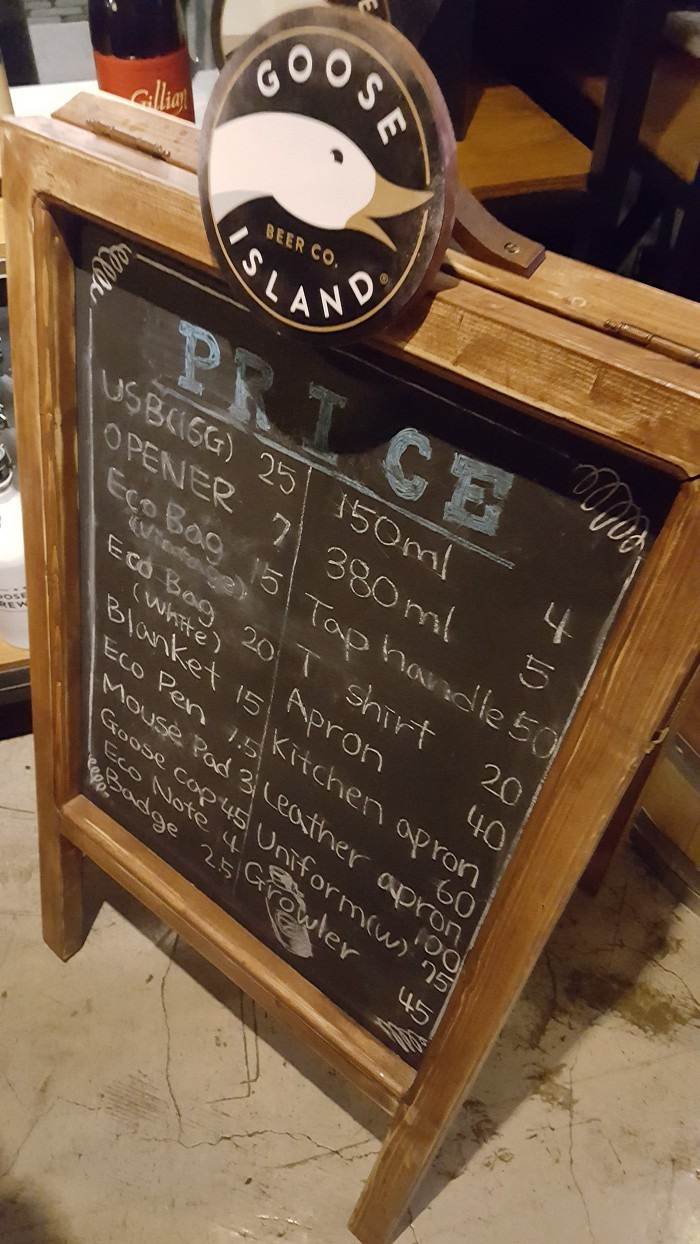 Gilliam
GOOSE
BEER CO.
ISLAND®
PRICE
USB(16G) 25
OPENER 7
Eco Bag
(Vintage) 15
Eco Bag
(White) 20
Blanket 15
Eco Pen 1.5
Mouse Pad 3
Goose cap 45
Eco Note 4
Badge 2.5
150ml 4
380ml 5
Tap handle 50
T shirt 20
Apron 40
Kitchen apron 60
Leather apron 100
Uniform(w) 75
Growler 45